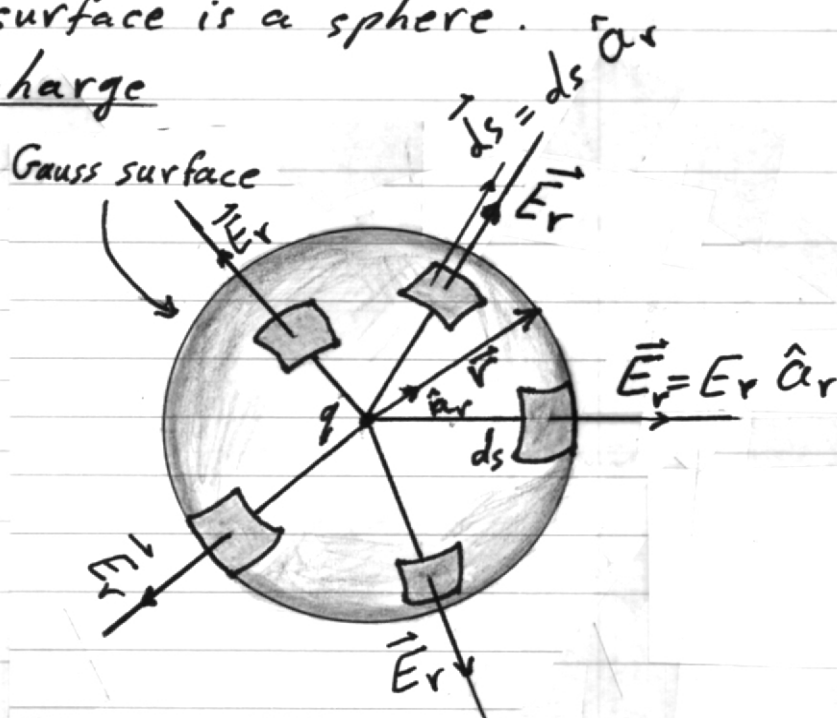 surface is a sphere.
harge
Gauss surface
d⃗s = ds âr
E⃗r
E⃗r
r⃗
âr
q
ds
E⃗r = Er âr
E⃗r
E⃗r